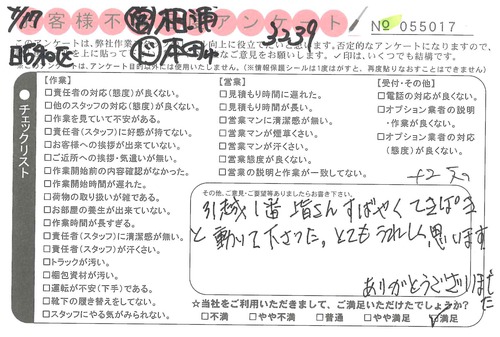 7/17 お客様不満アンケート № 055017
3239
昭和区
このアンケートは、弊社作業
向上に役立てたいと思います。否定的なアンケートになりますので、
を上に貼って
なご意見をお願いします。✓印は、いくつでも結構です。
アンケート目的以外には使用いたしません。(※情報保護シールは1度はがすと、再度貼りなおすことはできません)
チェックリスト
【作業】
□責任者の対応(態度)が良くない。
□他のスタッフの対応(態度)が良くない。
□作業を見ていて不安がある。
□責任者(スタッフ)に好感が持てない。
□お客様への挨拶が出来ていない。
□ご近所への挨拶・気遣いが無い。
□作業開始前の内容確認がなかった。
□作業開始時間が遅れた。
□荷物の取り扱いが雑である。
□お部屋の養生が出来ていない。
□作業時間が長すぎる。
□責任者(スタッフ)に清潔感が無い。
□責任者(スタッフ)が汗くさい。
□トラックが汚い。
□梱包資材が汚い。
□運転が不安(下手)である。
□靴下の履き替えをしてない。
□スタッフにやる気がみられない。
【営業】
□見積もり時間に遅れた。
□見積もり時間が長い。
□営業マンに清潔感が無い。
□営業マンが煙草くさい。
□営業マンが汗くさい。
□営業態度が良くない。
□営業の説明と作業が一致してない。
【受付・その他】
□電話の対応が良くない。
□オプション業者の説明
・作業が良くない。
□オプション業者の対応
(態度)が良くない。
その他、ご意見・ご要望等ありましたらお書き下さい。
引越し1番 皆さんすばやくてきぱき
と動いて下さった。とてもうれしく思います
ありがとうございました
☆当社をご利用いただきまして、ご満足いただけたでしょうか?
□不満 □やや不満 □普通 □やや満足 ☑満足